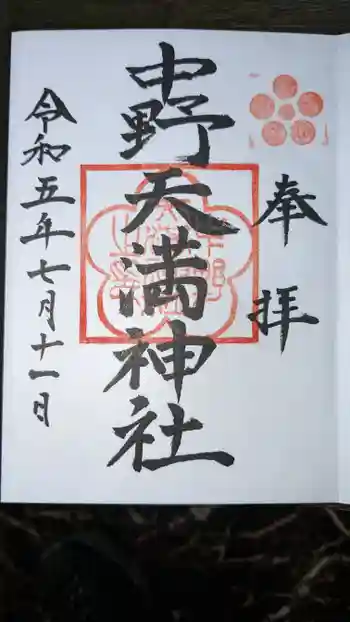 奉拝
中野天満神社
令和五年七月十一日